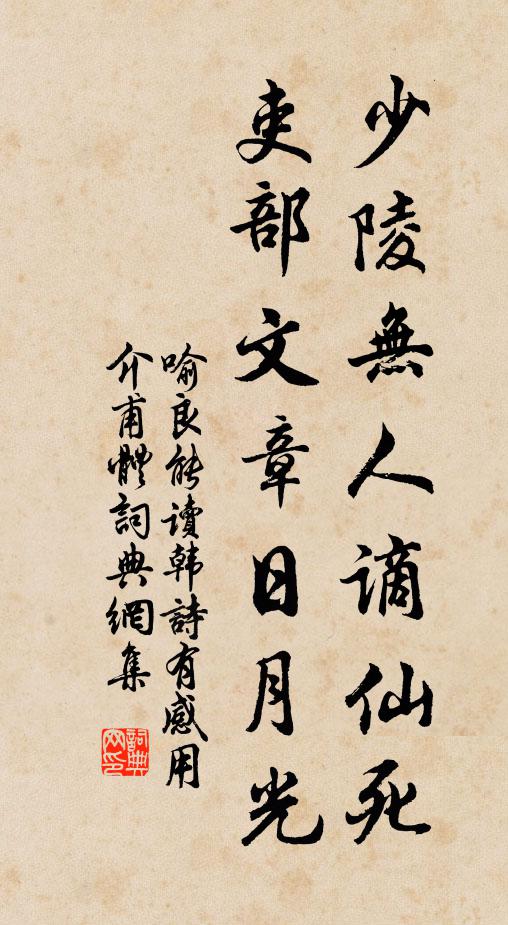 少陵無人謫仙死
吏部文章日月光
喻良能讀韩詩有感用
介甫體詞典網集
詞典
网印